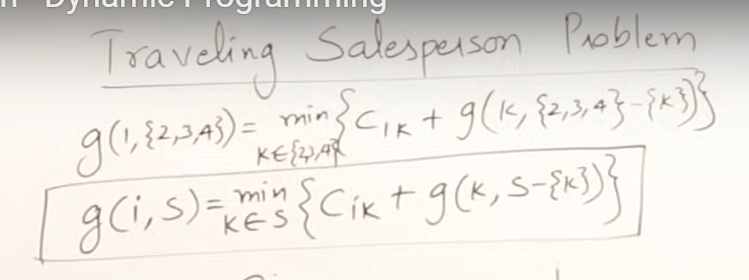 Dynamic Programming
Traveling Salesperson Problem
g(1,{2,3,4})= min{C1K + g(K, {2,3,4}-{K})}
K∈{2,3,4}
g(i,S)= min{CiK + g(K, S-{K})}
K∈S